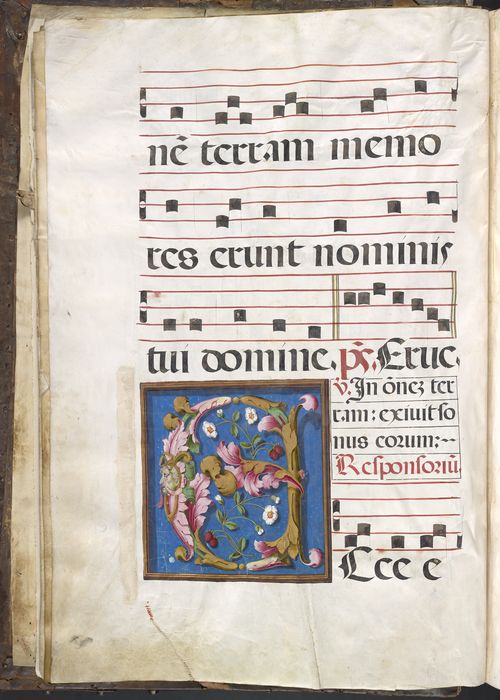 nē terram memo
res erunt nominis
tui domine. ps. Eruc.
v. In ōnez ter
ram: exiuit so
nus eorum:--
Responsoriū.
E
cce e